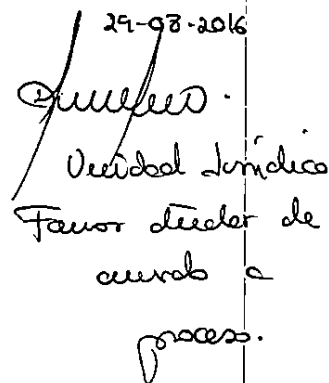 29-03-2016
Unidad Jurídica
Favor atender de
acuerdo a
proceso.